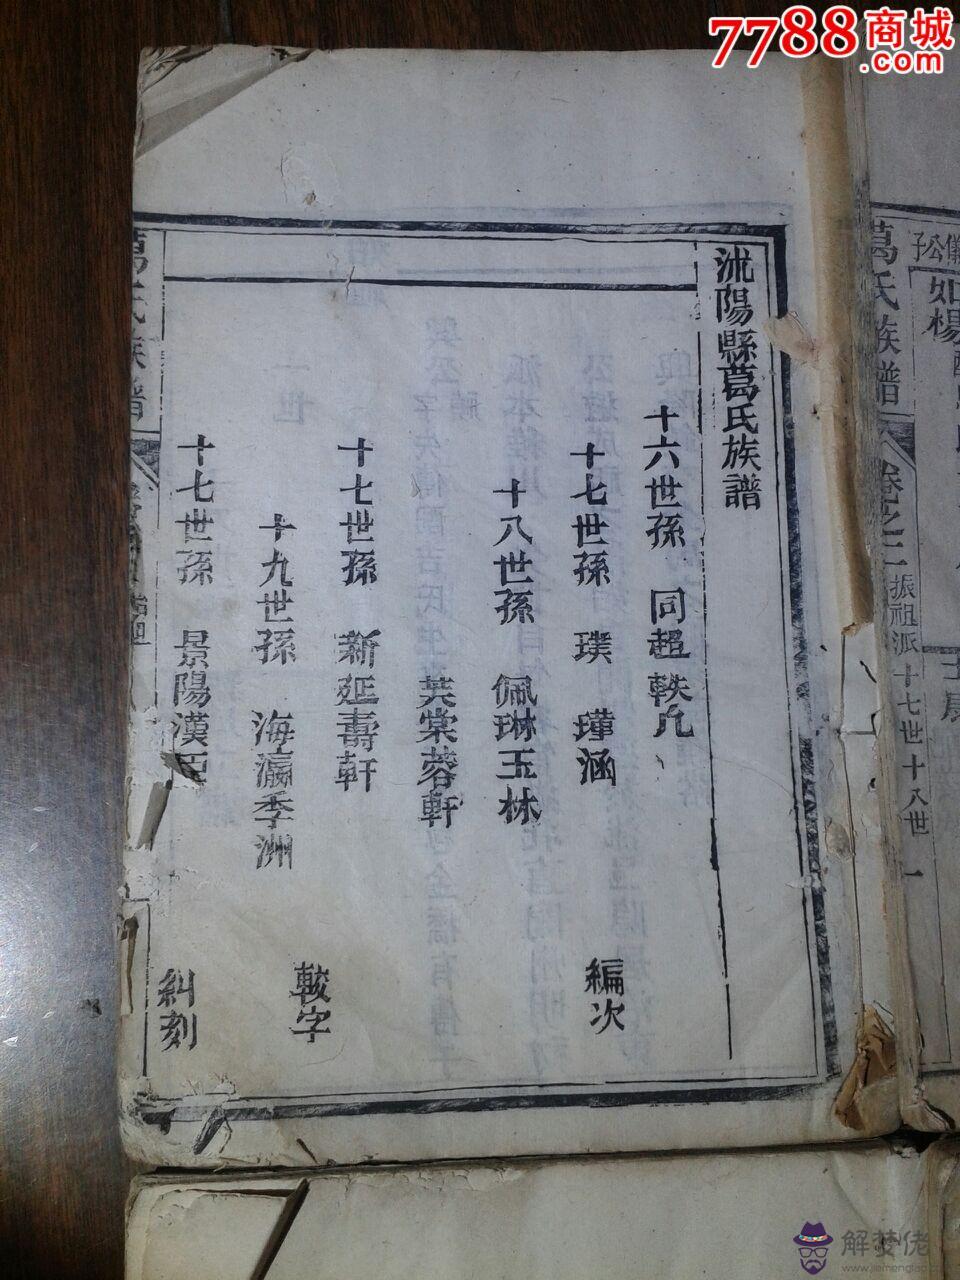 7788商城
.com
沭陽縣葛氏族譜
十六世孫 同超軼凡
十七世孫 璞 瑾涵
編次
十八世孫 佩琳玉林
芙棠蓉軒
十七世孫 新延壽軒
較字
十九世孫 海瀛季洲
十七世孫 景陽漢
糾刻
葛氏族譜
葛氏族譜 卷之二 振祖派 十七世十八世 一
公子
如楊
解梦佬
www.jiemenglao.com